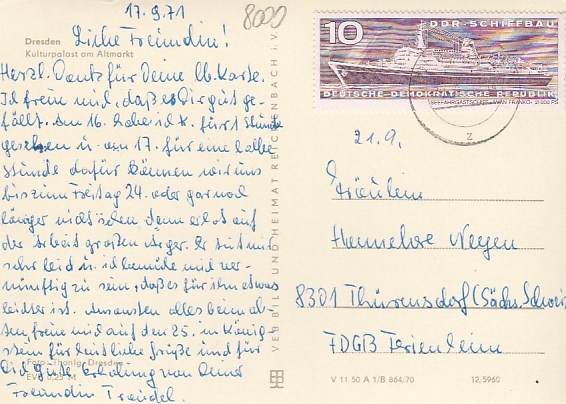 17.9.71
8000
Dresden
Kulturpalast am Altmarkt
Liebe Freundin!
Herzl. Dank für Deine lb. Karte.
Ich freue mich, daß es Dir gut ge-
fällt. Den 16. habe ich K. für 1 Stunde
gesehen u. am 17. für eine halbe
Stunde dafür können wir uns
bis zum Freitag 24. oder gar noch
länger nicht sehen denn er hat auf
der Arbeit großen Ärger. Er tut mir
sehr leid u. ich bemühe mich ver-
nünftig zu sein, daß es für ihn etwas
leichter ist. Ansonsten alles beim al-
ten, freue mich auf den 25. in König-
stein für heute liebe Grüße und für
Dich gute Erholung von Deiner
Freundin Traudel.
Foto: Thonig, Dresden
EVP 0,25 M
VERLAG BILD UND HEIMAT REICHENBACH i. V.
10
DDR-SCHIFFBAU
DEUTSCHE DEMOKRATISCHE REPUBLIK
SEEFAHRGASTSCHIFF »IWAN FRANKO« 21000 PS
z
21.9.
Fräulein
Hannelore
8301 Thürmsdorf (Sächs. Schweiz)
FDGB Ferienheim
V 11 50 A 1/B 864/70
12/5960